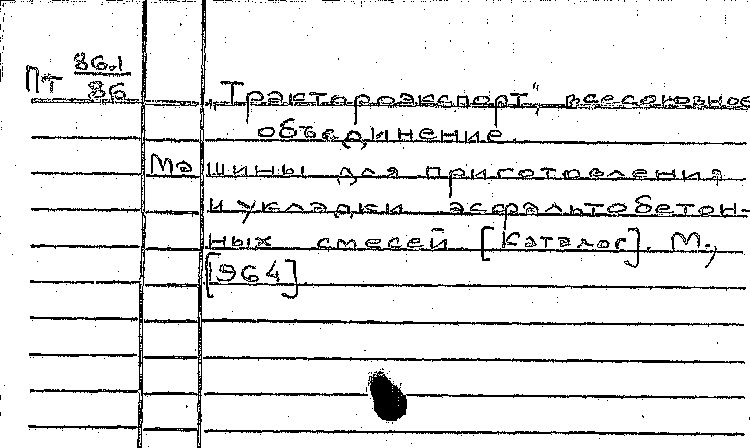 Пт 86.1
86
„Трактороэкспорт", всесоюзное
объединение.
Машины для приготовления
и укладки асфальтобетон-
ных смесей [каталог]. М.,
[964]